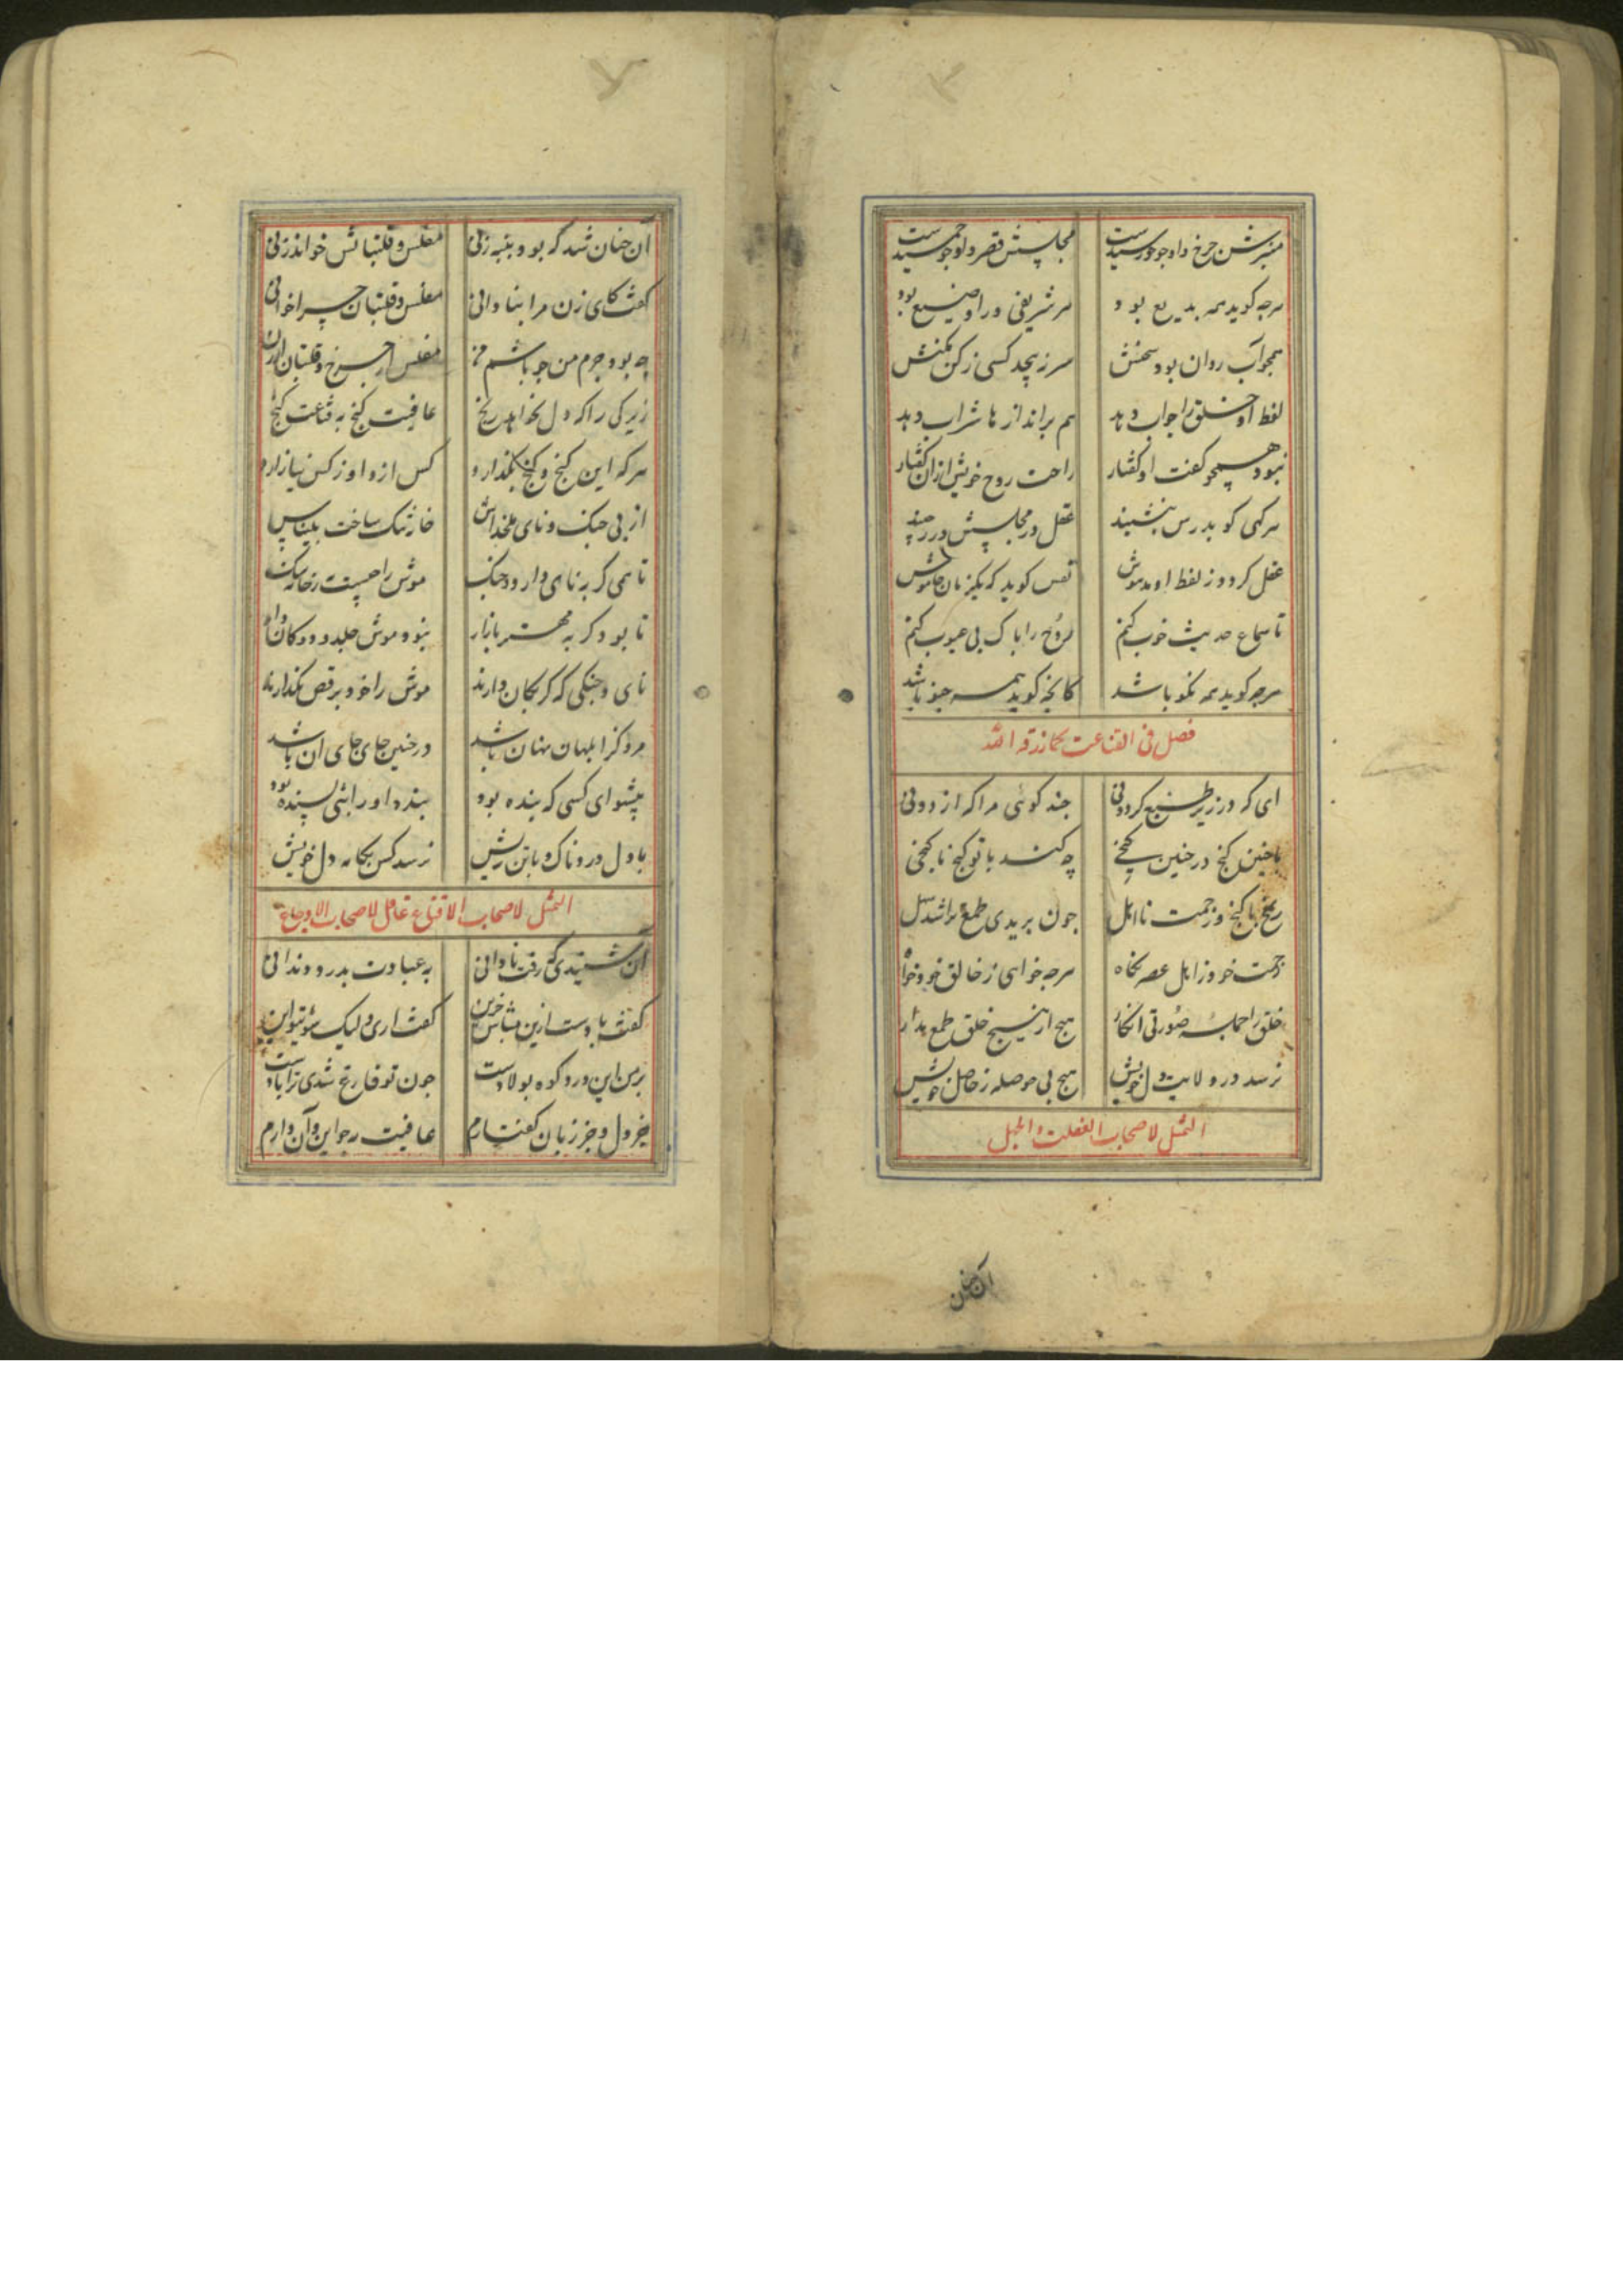 منبرش چرخ و او چو خورشیدست مجلسش قصر و او چو جمشیدست
هرچه کوید همه بدیع بود هر شریفی ورا وضیع بود
همچو آب روان بود سخنش سر نپیچد کسی ز کن مکنش
لفظ او خلق را جواب دهد هم بر انداز ها شراب دهد
نبود هیچ کفت او کفتار راحت روح خویش ازان کفتار
هر کهی کو بدرس بنشیند عقل در مجلسش درر چیند
عقل کردد ز لفظ او مدهوش نفس کوید که یکزمان خاموش
تا سماع حدیث خوب کنیم روح را پاک بی عیوب کنیم
هرجه کوید همه نکو باشد کانچه کوید همه چنو باشد
فصل فی القناعت بما رزقه الله
ای که در زیر طبع کردونی جند کوئی مرا که از دونی
با جنین کنج در جنین کنجی چه کند با تو کنج ناکنجی
رنج با کنج و زحمت نااهل جون بریدی طمع ترا شد سهل
زحمت خود ز اهل عصر بکاه هرجه خواهی ز خالق خود خواه
خلق را جمله صورتی انکار هیج از هیج خلق طمع مدار
نرسد در ولایت دل خویش هیج بی حوصله ز حاصل خویش
التمثل لاصحاب الغفلت و الجهل
آن جنان
آن جنان شد که بود پنبه زنی مفلس و قلتبانش خواند زنی
کفت کای زن مرا بنادانی مفلس و قلتبان جرا خوانی
چه بود جرم من جو باشم من مفلس از جرخ و قلتبان از زن
زیرکی را که دل نخواهد رنج عافیت کنج به قناعت کنج
هر که این کنج و کنج بکذارد کس ازو او ز کس نیازارد
از پی جنک و نای
خانه تنک ساخت
تا همی کربه نای دارد و جنک موش را جیست به ز خانه تنک
تا بود کربه مهتر بازار نبود موش جلد و دوکان دار
نای و جنکی که کربکان دارند موش را خود برقص نکذارند
مرد کز ابلهان نهان باشد در جنین جای جای آن باشد
پیشوای کسی که بنده بود
با دل دردناک و با تن ریش نرسد کس بکام دل خویش
التمثل لاصحاب الاقناع غافل لاصحاب الاوجاع
آن شنیدی که رفت نادانی به عیادت بدرد دندانی
کفت بادست ازین مباش حزین کفت اری ولیک سوی تو این
بر من این درد کوه پولادست جون تو فارغ شدی ترا بادست
جز دل و جز زبان کفتارم عافیت رجو این و آن دارم